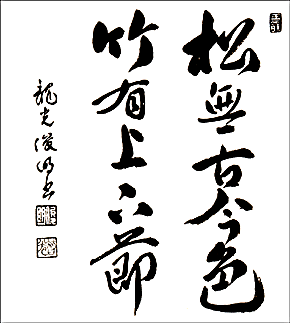 松無古今色
竹有上下節
龍光俊明書